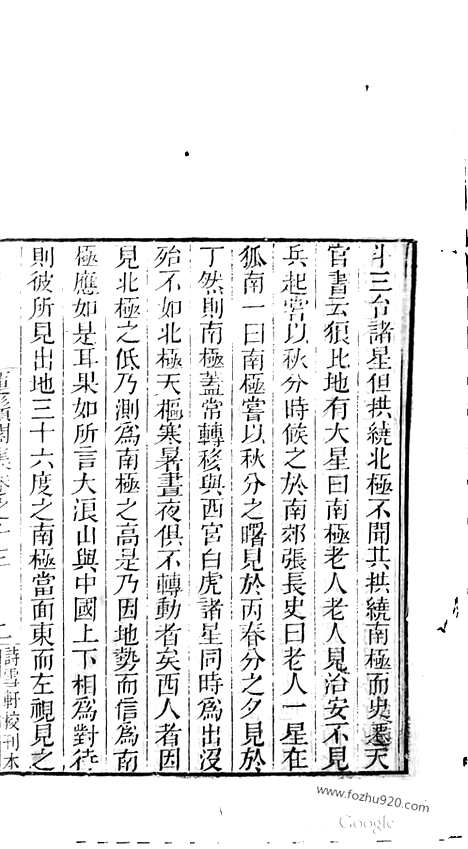 斗三台諸星但拱繞北極不聞共拱繞南極而史遷天
官書云狼比地有大星曰南極老人老人見治安不見
兵起嘗以秋分時候之於南郊張長史曰老人一星在
狐南一曰南極嘗以秋分之曙見於丙春分之夕見於
丁然則南極蓋常轉移與西官白虎諸星同時為出沒
殆不如北極天樞寒暑晝夜俱不轉動者矣西人者因
見北極之低乃測為南極之高是乃因地勢而信為南
極應如是耳果如所言大浪山與中國上下相為對待
則彼所見出地三十六度之南極當面東而左視見之
詩雪軒校刊本
www.fozhu920.com
Google